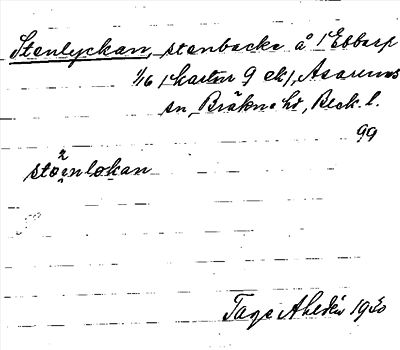 Stenlyckan, stenbacke å 1 Ebbarp
1/16 (kartn 9 ek), Asarums
sn, Bräkne hd, Bleck. l.
99
stöenlokan
Tage Ahldén 1930